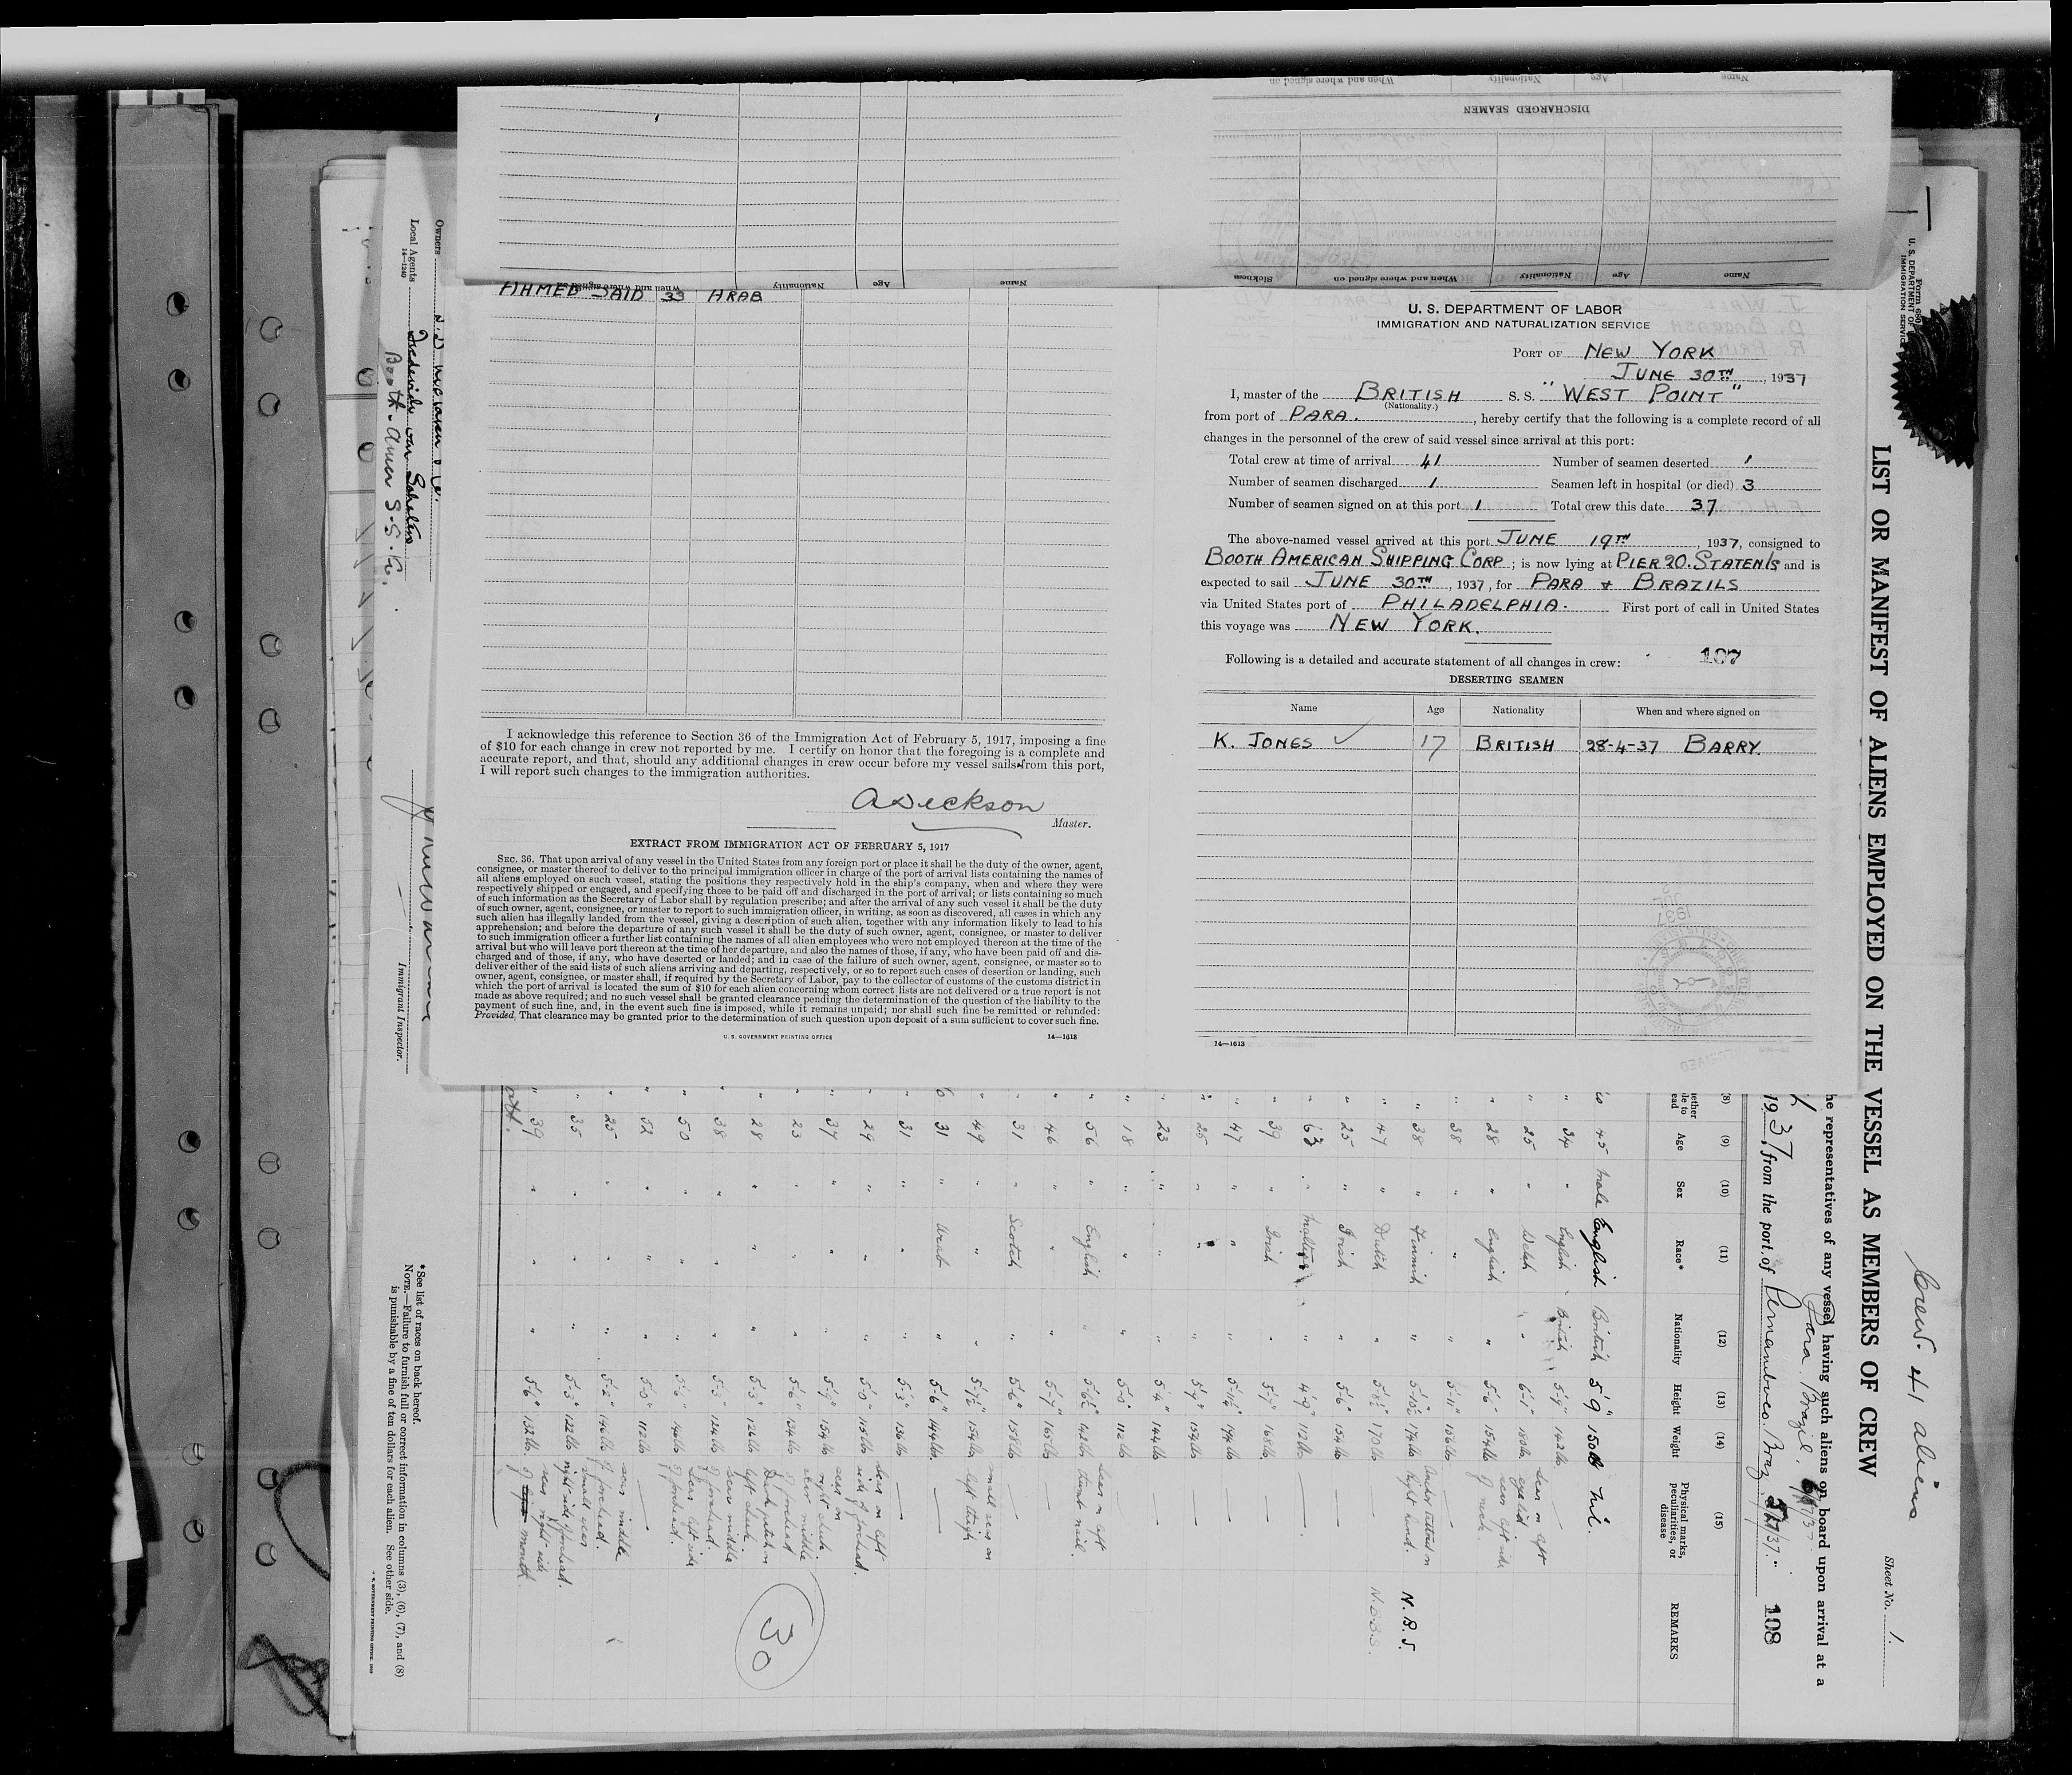 U. S. DEPARTMENT OF LABOR
IMMIGRATION AND NATURALIZATION SERVICE
PORT OF NEW YORK
JUNE 30TH, 1937
I, master of the BRITISH S. S. "WEST POINT"
(Nationality.)
from port of PARA., hereby certify that the following is a complete record of all
changes in the personnel of the crew of said vessel since arrival at this port:
Total crew at time of arrival 41 Number of seamen deserted 1
Number of seamen discharged 1 Seamen left in hospital (or died) 3
Number of seamen signed on at this port 1 Total crew this date 37
The above-named vessel arrived at this port JUNE 19TH, 1937, consigned to
BOOTH AMERICAN SHIPPING CORP; is now lying at PIER 20. STATEN IS and is
expected to sail JUNE 30TH, 1937, for PARA & BRAZILS
via United States port of PHILADELPHIA. First port of call in United States
this voyage was NEW YORK.
Following is a detailed and accurate statement of all changes in crew: 107
DESERTING SEAMEN
Name Age Nationality When and where signed on
K. JONES 17 BRITISH 28-4-37 BARRY.
14—1613
DISCHARGED SEAMEN
Name Age Nationality When and where signed on
Name Age Nationality When and where signed on Sickness
Name Age Nationality When and where signed on
AHMED SAID 33 ARAB
I acknowledge this reference to Section 36 of the Immigration Act of February 5, 1917, imposing a fine
of $10 for each change in crew not reported by me. I certify on honor that the foregoing is a complete and
accurate report, and that, should any additional changes in crew occur before my vessel sails from this port,
I will report such changes to the immigration authorities.
A Dickson
Master.
EXTRACT FROM IMMIGRATION ACT OF FEBRUARY 5, 1917
SEC. 36. That upon arrival of any vessel in the United States from any foreign port or place it shall be the duty of the owner, agent,
consignee, or master thereof to deliver to the principal immigration officer in charge of the port of arrival lists containing the names of
all aliens employed on such vessel, stating the positions they respectively hold in the ship's company, when and where they were
respectively shipped or engaged, and specifying those to be paid off and discharged in the port of arrival; or lists containing so much
of such information as the Secretary of Labor shall by regulation prescribe; and after the arrival of any such vessel it shall be the duty
of such owner, agent, consignee, or master to report to such immigration officer, in writing, as soon as discovered, all cases in which any
such alien has illegally landed from the vessel, giving a description of such alien, together with any information likely to lead to his
apprehension; and before the departure of any such vessel it shall be the duty of such owner, agent, consignee, or master to deliver
to such immigration officer a further list containing the names of all alien employees who were not employed thereon at the time of the
arrival but who will leave port thereon at the time of her departure, and also the names of those, if any, who have been paid off and dis-
charged and of those, if any, who have deserted or landed; and in case of the failure of such owner, agent, consignee, or master so to
deliver either of the said lists of such aliens arriving and departing, respectively, or so to report such cases of desertion or landing, such
owner, agent, consignee, or master shall, if required by the Secretary of Labor, pay to the collector of customs of the customs district in
which the port of arrival is located the sum of $10 for each alien concerning whom correct lists are not delivered or a true report is not
made as above required; and no such vessel shall be granted clearance pending the determination of the question of the liability to the
payment of such fine, and, in the event such fine is imposed, while it remains unpaid; nor shall such fine be remitted or refunded:
Provided, That clearance may be granted prior to the determination of such question upon deposit of a sum sufficient to cover such fine.
U. S. GOVERNMENT PRINTING OFFICE 14—1613
Crew. 41 aliens
Sheet No. 1.
U. S. DEPARTMENT OF
IMMIGRATION SERVICE
LIST OR MANIFEST OF ALIENS EMPLOYED ON THE VESSEL AS MEMBERS OF CREW
he representatives of any vessel having such aliens on board upon arrival at a
Para Brazil,
1937, from the port of Pernambuco. Braz 108
(8) (9) (10) (11) (12) (13) (14) (15)
Age Sex Race* Nationality Height Weight Physical marks, peculiarities, or disease REMARKS
45 male English British 5'9" 150lb nil.
34 " English British 5-9" 142lb
25 " Welsh " 6-1" scar on left eyelid.
28 " English " 5-6" 154lb scar left side of neck
38 " " " 5-11"
38 " Finnish " 5-10½" 174lb N.B.S.
47 " Dutch " 5-8½" 170lb N.B.S.
25 " Irish " 5-6" 154lb
63 " Maltese " 4-9" 112lb
39 " Irish " 5-7" 168lb
47 " " "
25 " " " 5-7" 154lb
23 " " " 5-4" 144lb
18 " " " 5-0" 112lb
56 " English " 5-6½" 142lb scar on left thumb nail.
46 " " " 5-7" 165lb
31 " Scotch " 5-6" 155lb
49 " " " 5-7½" 154lb small scar on left thigh
31 " Arab " 5-6" 144lb
31 " " " 5-3" 136lb
29 " " " 5-0" 115lb scar on left side of forehead.
37 " " " 5-7" 154lb scar on right cheek.
23 " " " 5-6" 134lb scar middle of forehead
28 " " " 5-3" 126lb Dark patch on left cheek.
38 " " " 5-3" 124lb scar middle of forehead.
50 " " " 5-6" 140lb scar left side of forehead.
52 " " " 5-0" 112lb
25 " " " 5-2" 146lb scar middle of forehead.
35 " " " 5-3" 122lb small scar right side forehead.
39 " " " 5-6" 132lb scar right side of mouth.
30
*See list of races on back hereof.
NOTE.—Failure to furnish full or correct information in columns (3), (6), (7), and (8)
is punishable by a fine of ten dollars for each alien. See other side.
Owners
Local Agents
14—1240
Booth. Amer S.S. Co.
Immigrant Inspector.